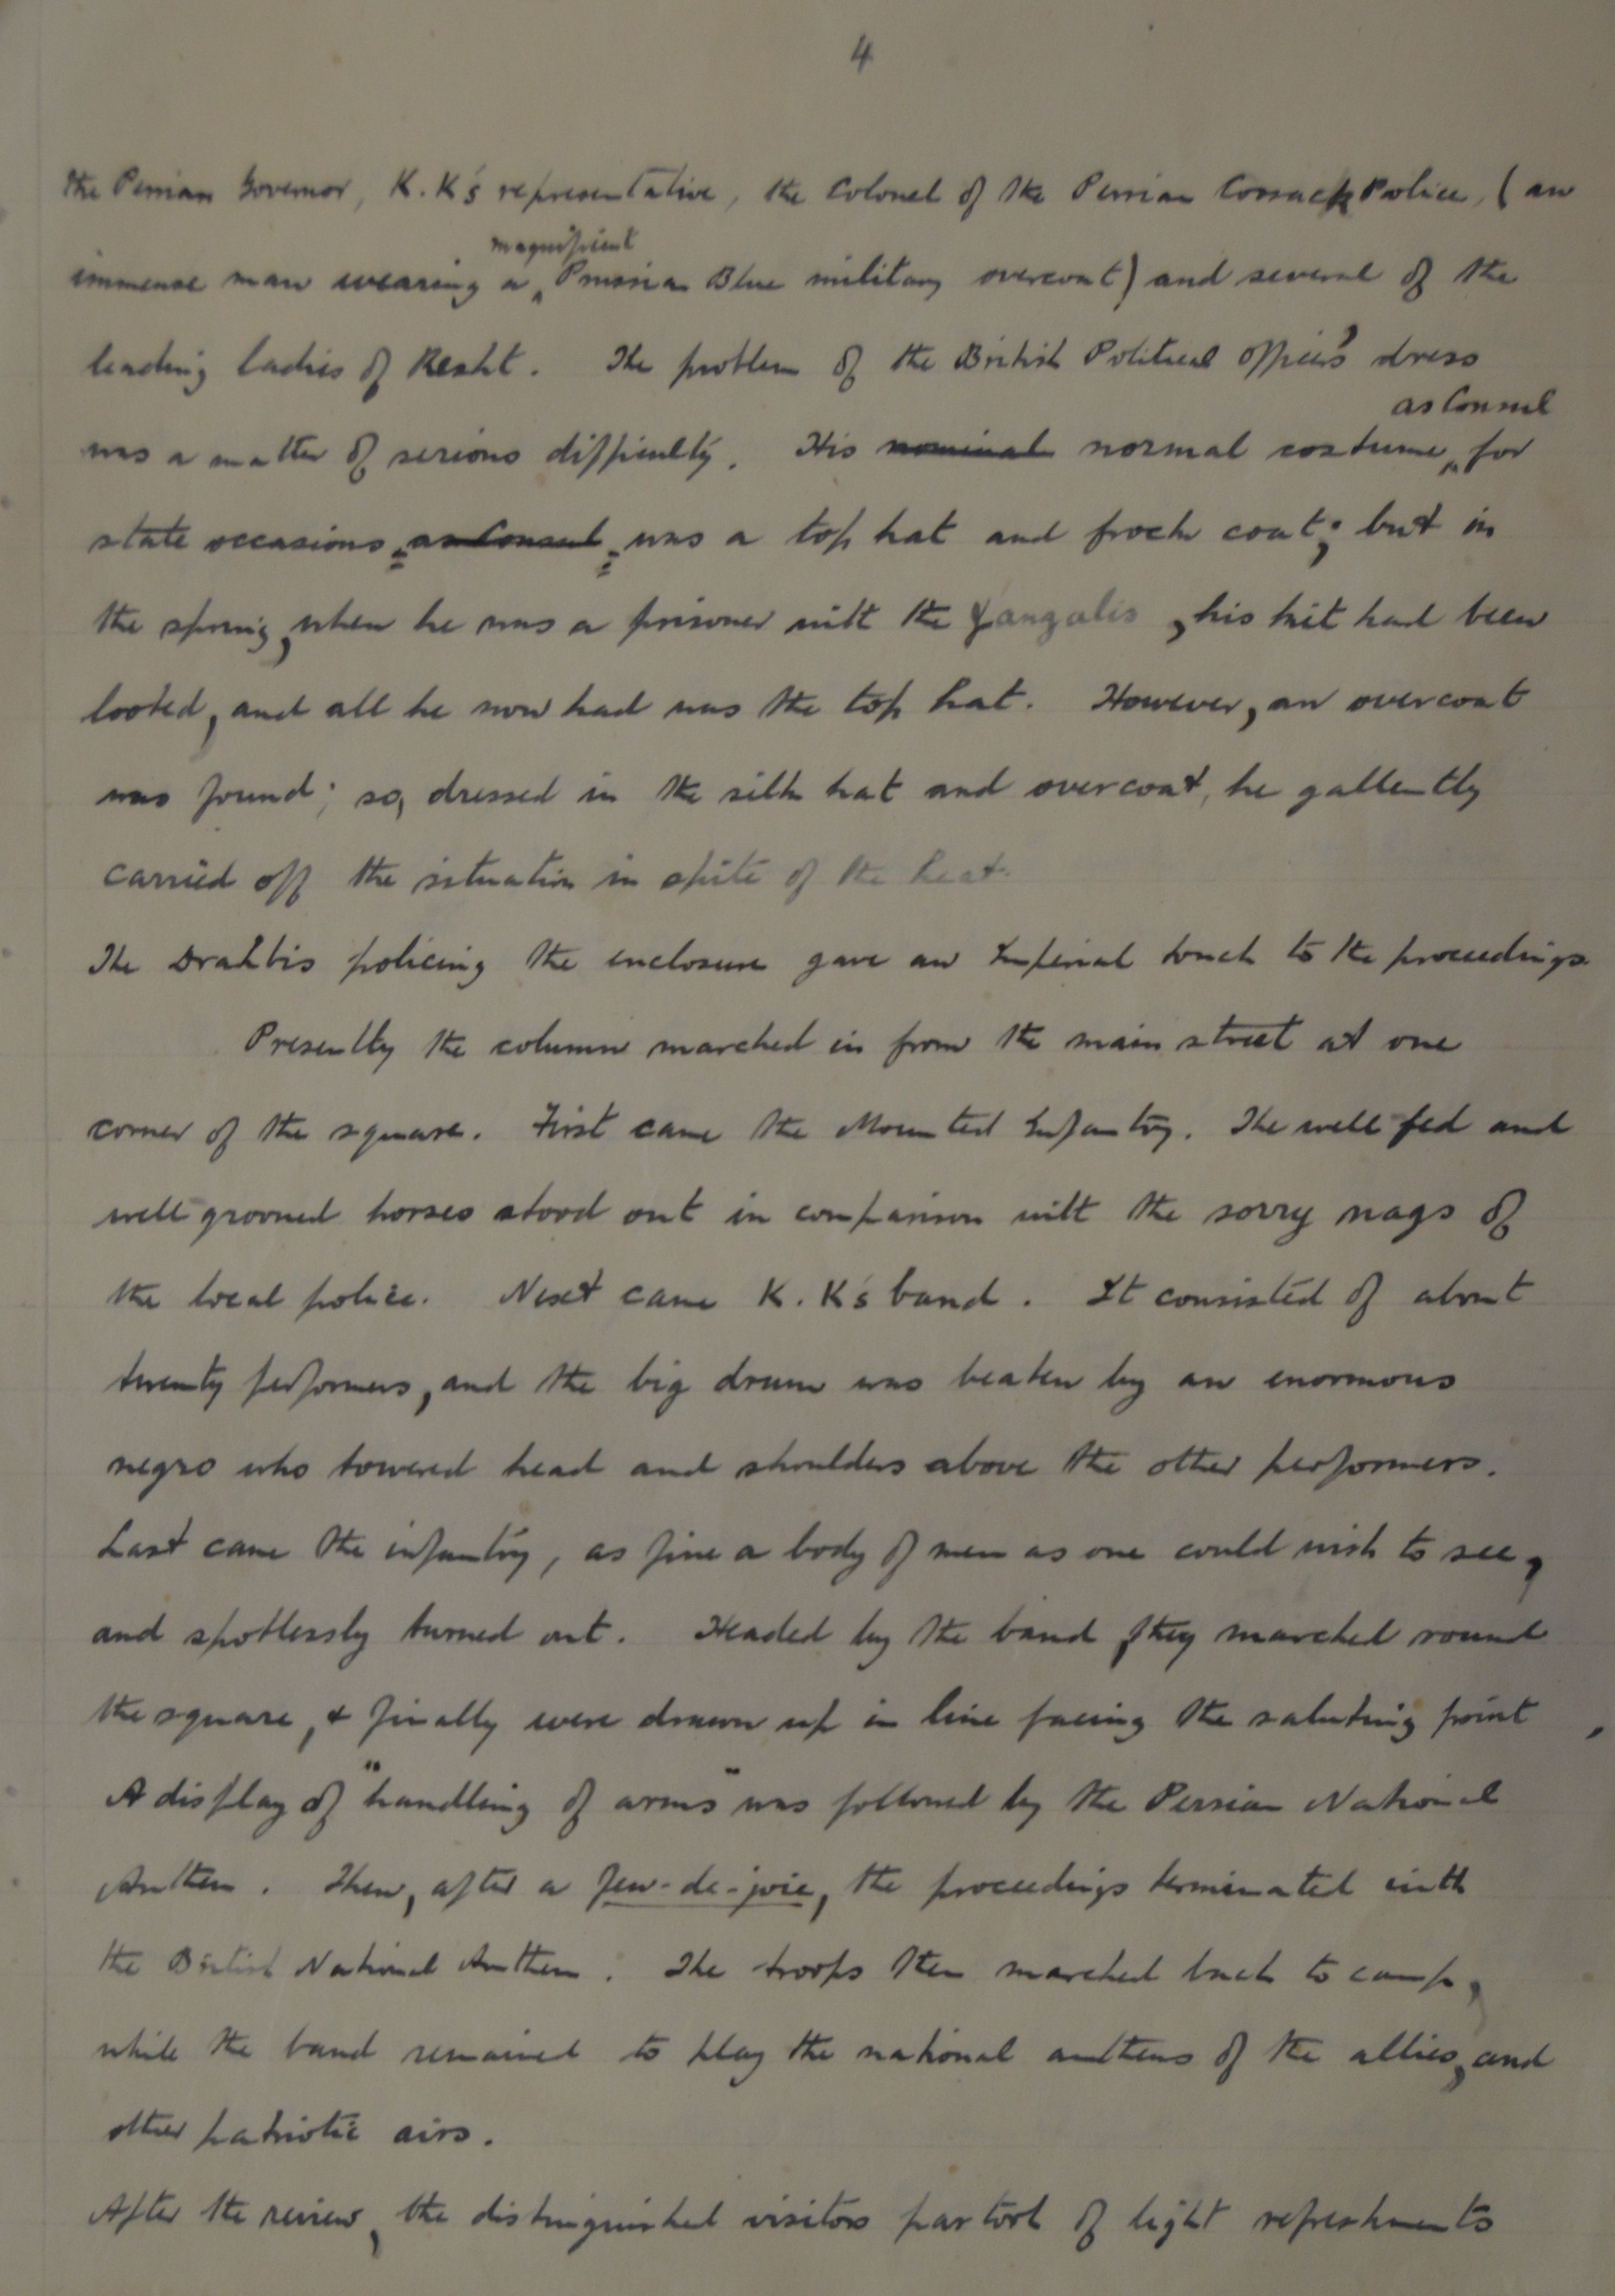 4
the Persian Governor, K.K's representative, the Colonel of the Persian Cossack Police, (an
magnificent
immense man wearing a Prussian Blue military overcoat) and several of the
leading ladies of Resht. The problem of the British Political Officer's dress
as Consul
was a matter of serious difficulty. His nominal normal costume, for
state occasions, as Consul, was a top hat and frock coat; but in
the spring, when he was a prisoner with the Jangalis, his kit had been
looted, and all he now had was the top hat. However, an overcoat
was found; so, dressed in the silk hat and overcoat, he gallently
carried off the situation in spite of the heat.
The policing the enclosure gave an Imperial touch to the proceedings
Presently the column marched in from the main street at one
corner of the square. First came the Mounted Infantry. The well-fed and
well-groomed horses stood out in comparison with the sorry nags of
the local police. Next came K.K's band. It consisted of about
twenty performers, and the big drum was beaten by an enormous
negro who towered head and shoulders above the other performers.
Last came the infantry, as fine a body of men as one could wish to see,
and spotlessly turned out. Headed by the band, they marched round
the square, & finally were drawn up in line facing the saluting point.
A display of "handling of arms" was followed by the Persian National
Anthem. Then, after a feu-de-joie, the proceedings terminated with
the British National Anthem. The troops then marched back to camp,
while the band remained to play the national anthems of the allies, and
other patriotic airs.
After the review, the distinguished visitors partook of light refreshments